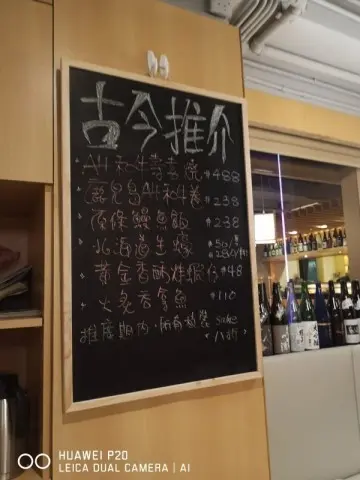 古今推介
A4和牛壽喜燒 $488
鹿兒島A4和牛卷 $238
原條鰻魚飯 $238
北海道生蠔 $50/隻
黃金香酥炸蝦 $48
火炙 $110
推廣期內,所有 sake
八折
HUAWEI P20
LEICA DUAL CAMERA | AI